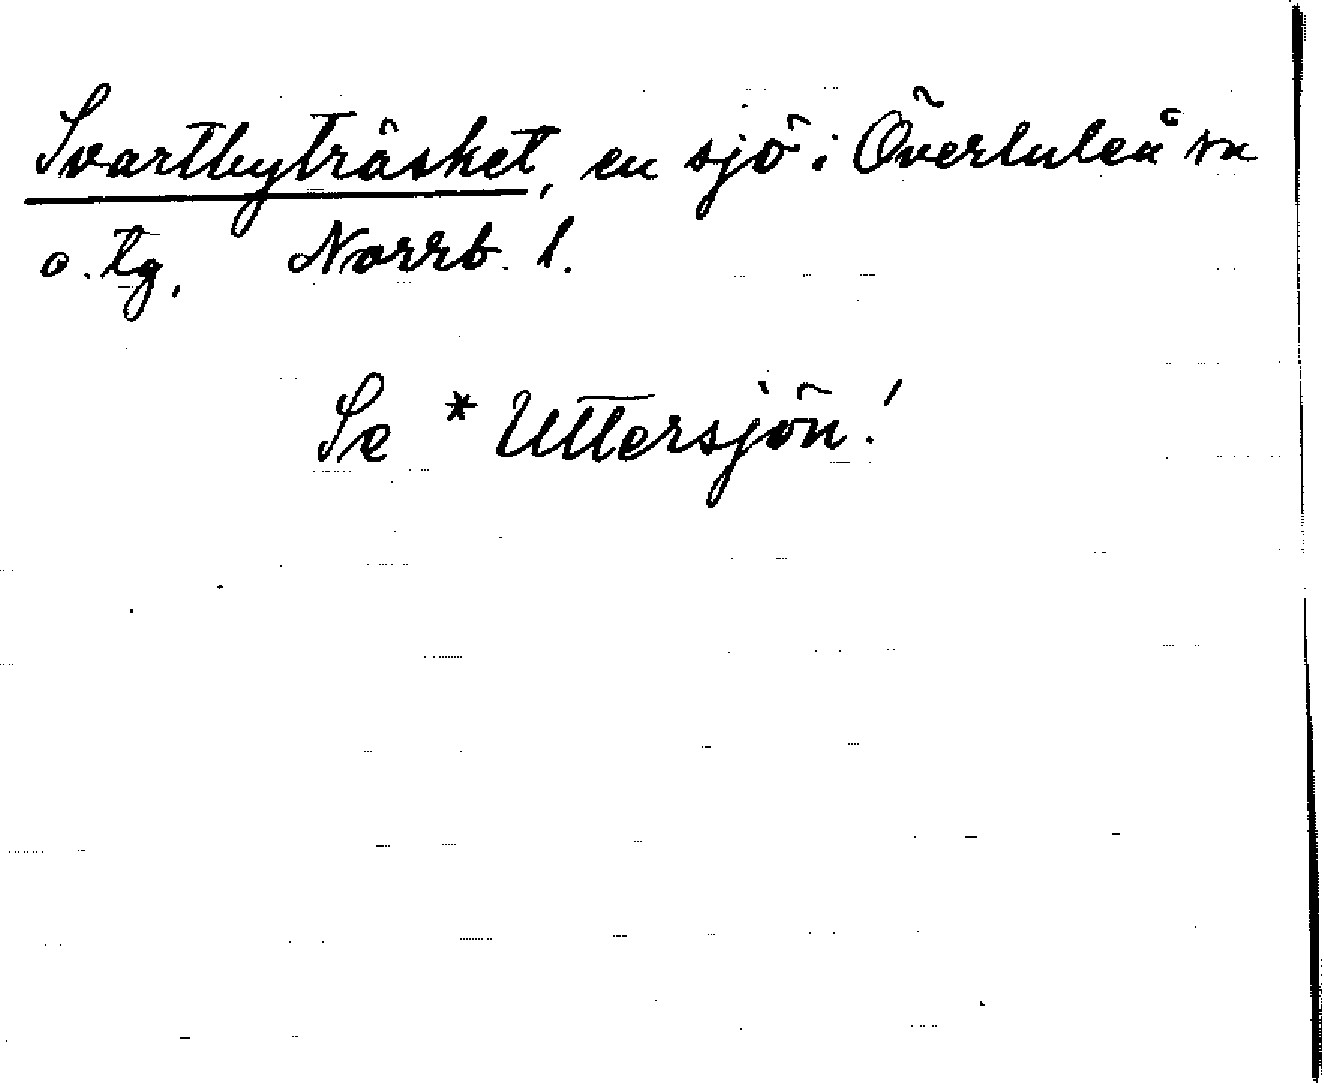 Svartbyträsket, en sjö i Överluleå sn
o. tg, Norrb. l.
Se *Uttersjön!